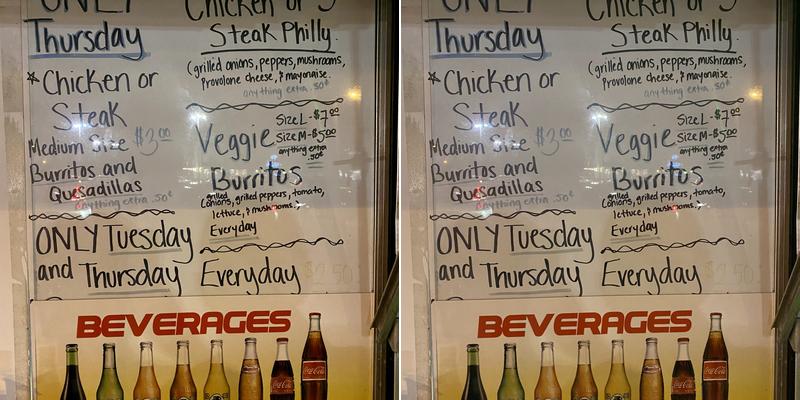 ONLY
Thursday
* Chicken or
Steak
Medium Size $3.00
Burritos and
Quesadillas
anything extra .50¢
ONLY Tuesday
and Thursday
Chicken or
Steak Philly
(grilled onions, peppers, mushrooms,
Provolone cheese, & mayonaise.
anything extra .50¢
Veggie
Size L - $7.00
Size M - $5.00
anything extra
.50¢
Burritos
grilled
(onions, grilled peppers, tomato,
lettuce, & mushrooms.)
Everyday
Everyday
BEVERAGES
Coca-Cola
Coca-Cola
ONLY
Thursday
* Chicken or
Steak
Medium Size $3.00
Burritos and
Quesadillas
anything extra .50¢
ONLY Tuesday
and Thursday
Chicken or
Steak Philly
(grilled onions, peppers, mushrooms,
Provolone cheese, & mayonaise.
anything extra .50¢
Veggie
Size L - $7.00
Size M - $5.00
anything extra
.50¢
Burritos
grilled
(onions, grilled peppers, tomato,
lettuce, & mushrooms.)
Everyday
Everyday
BEVERAGES
Coca-Cola
Coca-Cola